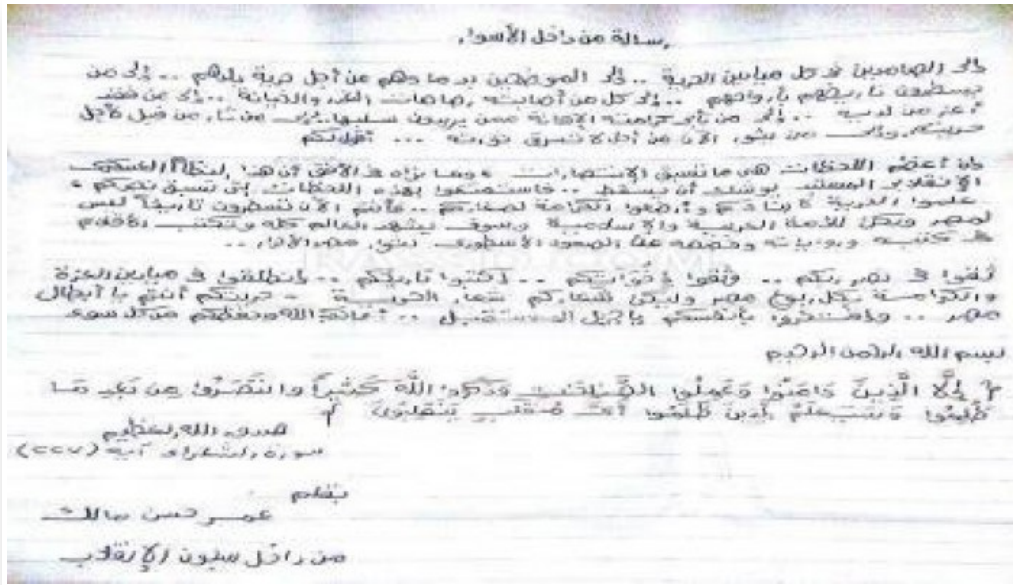 رسالة من داخل الأسوار
إلى الصامدين في كل ميادين الحرية .. إلى المضحين بدمائهم من أجل حرية بلدهم .. إلى من
يسطرون تاريخهم بأرواحهم .. إلى كل من أصابته رصاصات الغدر والخيانة .. إلى من فقد
أعز من لديه .. إلى من كرامته الإهانة ممن يريدون من قبل لأجل
حريته وإلى من الآن من أجل ألا تسرق ثورته ... أقول لكم
إن أعظم اللحظات هي ما تسبق الانتصارات وما نراه في الأفق أن هذا النظام العسكري
الانقلابي المستبد يوشك أن يسقط .. فاستمتعوا بهذه اللحظات التي تسبق نصركم
علموا الحرية لأبنائكم وأرضعوا الكرامة لصغاركم .. فأنتم الآن تسطرون تاريخاً ليس
لمصر ولكن للأمة العربية والإسلامية وسوف يشهد العالم كله وتكتب الأقلام
في كتبه ورواياته وقصصه عن الصمود الأسطوري مصر الأحرار ..
ثقوا في نصر ربكم .. وثقوا في ثورتكم .. اكتبوا تاريخكم .. انطلقوا في ميادين العزة
والكرامة بكل ربوع مصر وليكن شعاركم شعار الحرية - حريتكم أنتم يا أبطال
مصر .. وافتخروا بأنفسكم يا جيل المستقبل .. الله وحفظكم من كل سوء
بسم الله الرحمن الرحيم
{ إِلَّا الَّذِينَ ءَامَنُوا وَعَمِلُوا الصَّـلِحَـتِ وَذَكَرُوا اللَّهَ كَثِيراً وَانتَصَرُوا مِن بَعْدِ مَا
ظُلِمُوا وَسَيَعْلَمُ الَّذِينَ ظَلَمُوا أَىَّ مُنقَلَبٍ يَنقَلِبُونَ }
صدق الله العظيم
سورة الشعراء آية (٢٢٧)
بقلم
عمر حسن مالك
من داخل سجون الإنقلاب